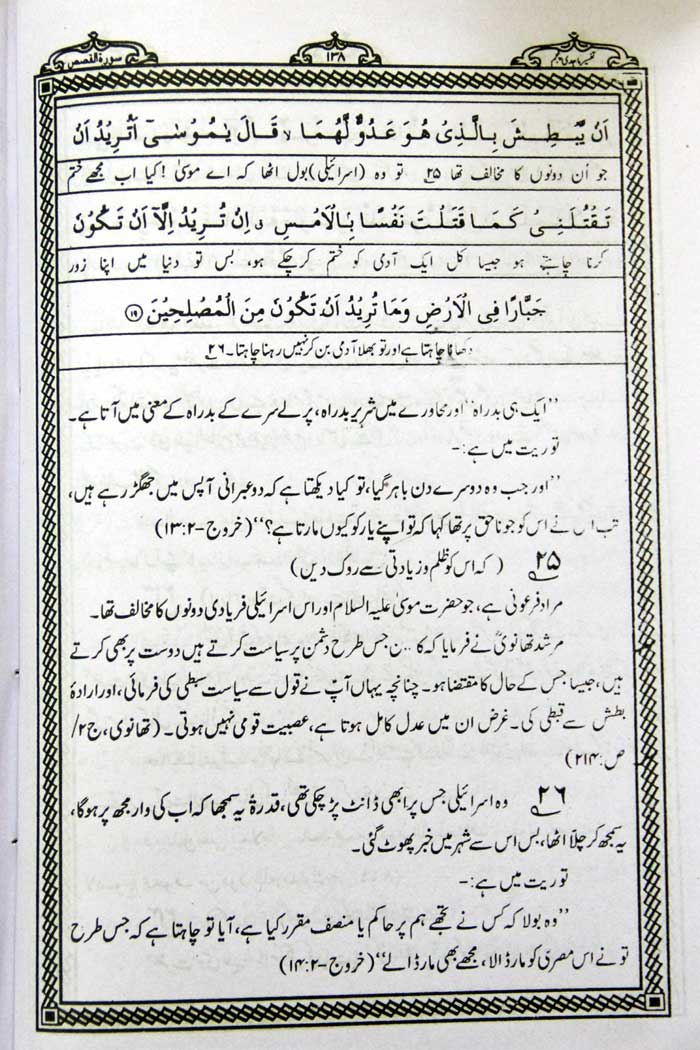 تفسیر ماجدی پنجم
۱۳۸
سورۃ القصص
اَنْ يَّبْطِشَ بِالَّذِىْ هُوَ عَدُوٌّ لَّهُمَا ۙ قَالَ يٰمُوْسٰٓى اَتُرِيْدُ اَنْ
جو اُن دونوں کا مخالف تھا ۲۵ تو وہ (اسرائیلی) بول اٹھا کہ اے موسیٰ! کیا اب مجھے ختم
تَقْتُلَنِىْ كَمَا قَتَلْتَ نَفْسًا بِالْاَمْسِ ۖ اِنْ تُرِيْدُ اِلَّآ اَنْ تَكُوْنَ
کرنا چاہتے ہو جیسا کل ایک آدمی کو ختم کرچکے ہو، بس تو دنیا میں اپنا زور
جَبَّارًا فِى الْاَرْضِ وَمَا تُرِيْدُ اَنْ تَكُوْنَ مِنَ الْمُصْلِحِيْنَ ﴿۱۹﴾
دکھانا چاہتا ہے اور تو بھلا آدمی بن کر نہیں رہنا چاہتا۔ ۲۶
’’ایک ہی بدراہ‘‘ اور محاورے میں شریر بدراہ، پرلے سرے کے بدراہ کے معنی میں آتا ہے۔
توریت میں ہے:-
’’اور جب وہ دوسرے دن باہر گیا، تو کیا دیکھتا ہے کہ دو عبرانی آپس میں جھگڑ رہے ہیں،
تب اس نے اس کو جو ناحق پر تھا کہا کہ تو اپنے یار کو کیوں مارتا ہے؟‘‘ (خروج-۱۳:۲)
۲۵ (کہ اس کو ظلم و زیادتی سے روک دیں)
مراد فرعونی ہے، جو حضرت موسیٰ علیہ السلام اور اس اسرائیلی فریادی دونوں کا مخالف تھا۔
مرشد تھانویؒ نے فرمایا کہ جس طرح دشمن پر سیاست کرتے ہیں دوست پر بھی کرتے
ہیں، جیسا جس کے حال کا مقتضا ہو۔ چنانچہ یہاں آپ نے قول سے سیاست سبطی کی فرمائی، اور ارادۂ
بطش سے قبطی کی۔ غرض ان میں عدل کامل ہوتا ہے، عصبیت قومی نہیں ہوتی۔ (تھانوی، ج۲/
ص:۲۱۴)
۲۶ وہ اسرائیلی جس پر ابھی ڈانٹ پڑ چکی تھی، قدرۃً یہ سمجھا کہ اب کی وار مجھ پر ہوگا،
یہ سمجھ کر چلا اٹھا، بس اس سے شہر میں خبر پھوٹ گئی۔
توریت میں ہے:-
’’وہ بولا کہ کس نے تجھے ہم پر حاکم یا منصف مقرر کیا ہے، آیا تو چاہتا ہے کہ جس طرح
تو نے اس مصری کو مار ڈالا، مجھے بھی مار ڈالے‘‘ (خروج-۱۴:۲)